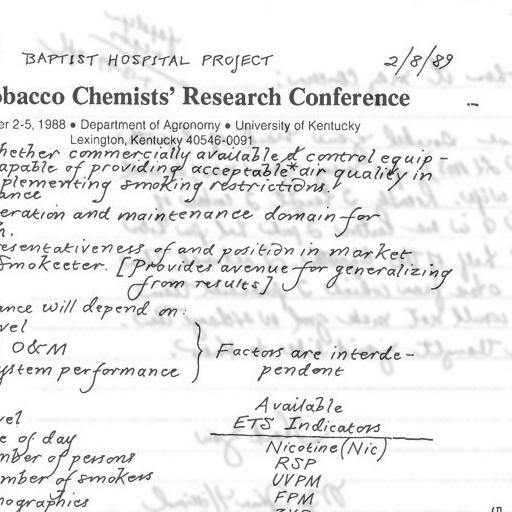 BAPTIST HOSPITAL PROJECT 2/8/89
obacco Chemists' Research Conference
er 2-5, 1988 • Department of Agronomy • University of Kentucky
Lexington, Kentucky 40546-0091
hether commercially available & control equip-
apable of providing acceptable* air quality in
plementing smoking restrictions.
ance
eration and maintenance domain for
n.
esentativeness of and position in market
Smokeeter. [Provides avenue for generalizing
from results]
ance will depend on:
vel
O&M
ystem performance
Factors are interde-
pendent
vel
e of day
mber of persons
mber of smokers
mographics
Available
ETS Indicators
Nicotine (Nic)
RSP
UVPM
FPM